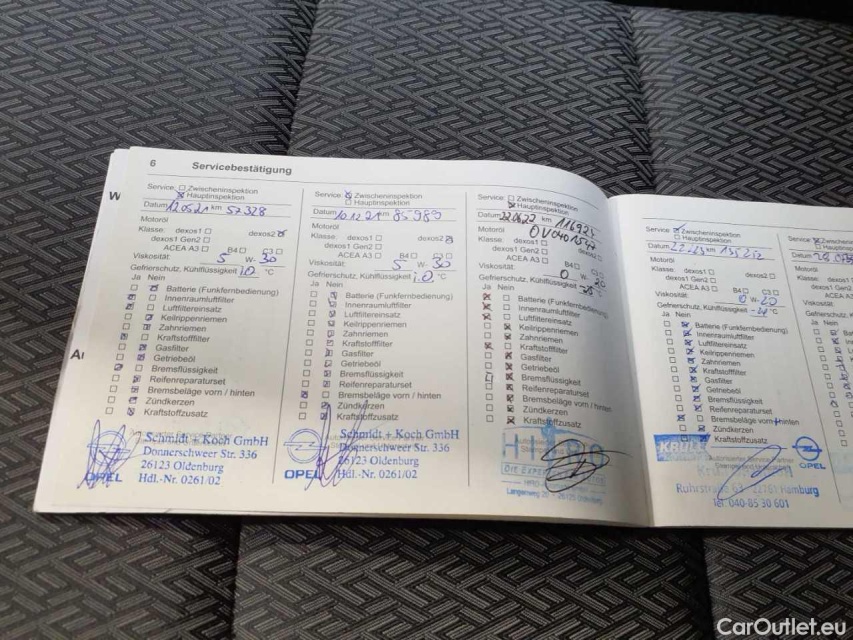 6 Servicebestätigung
W
Ai
Service: Zwischeninspektion
Hauptinspektion
Datum 12.05.21 km 57.328
Motoröl
Klasse: dexos1 dexos2
dexos1 Gen2
ACEA A3 B4 C3
Viskosität: 5 W- 30
Gefrierschutz, Kühlflüssigkeit i.O °C
Ja Nein
Batterie (Funkfernbedienung)
Innenraumluftfilter
Luftfiltereinsatz
Keilrippenriemen
Zahnriemen
Kraftstofffilter
Gasfilter
Getriebeöl
Bremsflüssigkeit
Reifenreparaturset
Bremsbeläge vorn / hinten
Zündkerzen
Kraftstoffzusatz
Schmidt + Koch GmbH
Donnerschweer Str. 336
26123 Oldenburg
Hdl.-Nr. 0261/02
OPEL
Service: Zwischeninspektion
Hauptinspektion
Datum 10.12.21 km 85989
Motoröl
Klasse: dexos1 dexos2
dexos1 Gen2
ACEA A3 B4 C3
Viskosität: 5 W- 30
Gefrierschutz, Kühlflüssigkeit i.O. °C
Ja Nein
Batterie (Funkfernbedienung)
Innenraumluftfilter
Luftfiltereinsatz
Keilrippenriemen
Zahnriemen
Kraftstofffilter
Gasfilter
Getriebeöl
Bremsflüssigkeit
Reifenreparaturset
Bremsbeläge vorn / hinten
Zündkerzen
Kraftstoffzusatz
Schmidt + Koch GmbH
Donnerschweer Str. 336
26123 Oldenburg
Hdl.-Nr. 0261/02
OPEL
Service: Zwischeninspektion
Hauptinspektion
Datum 22.06.22 km
Motoröl
Klasse: dexos1 dexos2
dexos1 Gen2
ACEA A3 B4 C3
Viskosität: 0 W- 20
Gefrierschutz, Kühlflüssigkeit °C
Ja Nein
Batterie (Funkfernbedienung)
Innenraumluftfilter
Luftfiltereinsatz
Keilrippenriemen
Zahnriemen
Kraftstofffilter
Gasfilter
Getriebeöl
Bremsflüssigkeit
Reifenreparaturset
Bremsbeläge vorn / hinten
Zündkerzen
Kraftstoffzusatz
Langenweg 26123 Oldenburg
Service: Zwischeninspektion
Hauptinspektion
Datum km
Motoröl
Klasse: dexos1 dexos2
dexos1 Gen2
ACEA A3 B4 C3
Viskosität: 0 W- 20
Gefrierschutz, Kühlflüssigkeit °C
Ja Nein
Batterie (Funkfernbedienung)
Innenraumluftfilter
Luftfiltereinsatz
Keilrippenriemen
Zahnriemen
Kraftstofffilter
Gasfilter
Getriebeöl
Bremsflüssigkeit
Reifenreparaturset
Bremsbeläge vorn / hinten
Zündkerzen
Kraftstoffzusatz
KRÜLL
OPEL
Ruhrstraße 63 22761 Hamburg
Tel. 040-85 30 601
CarOutlet.eu